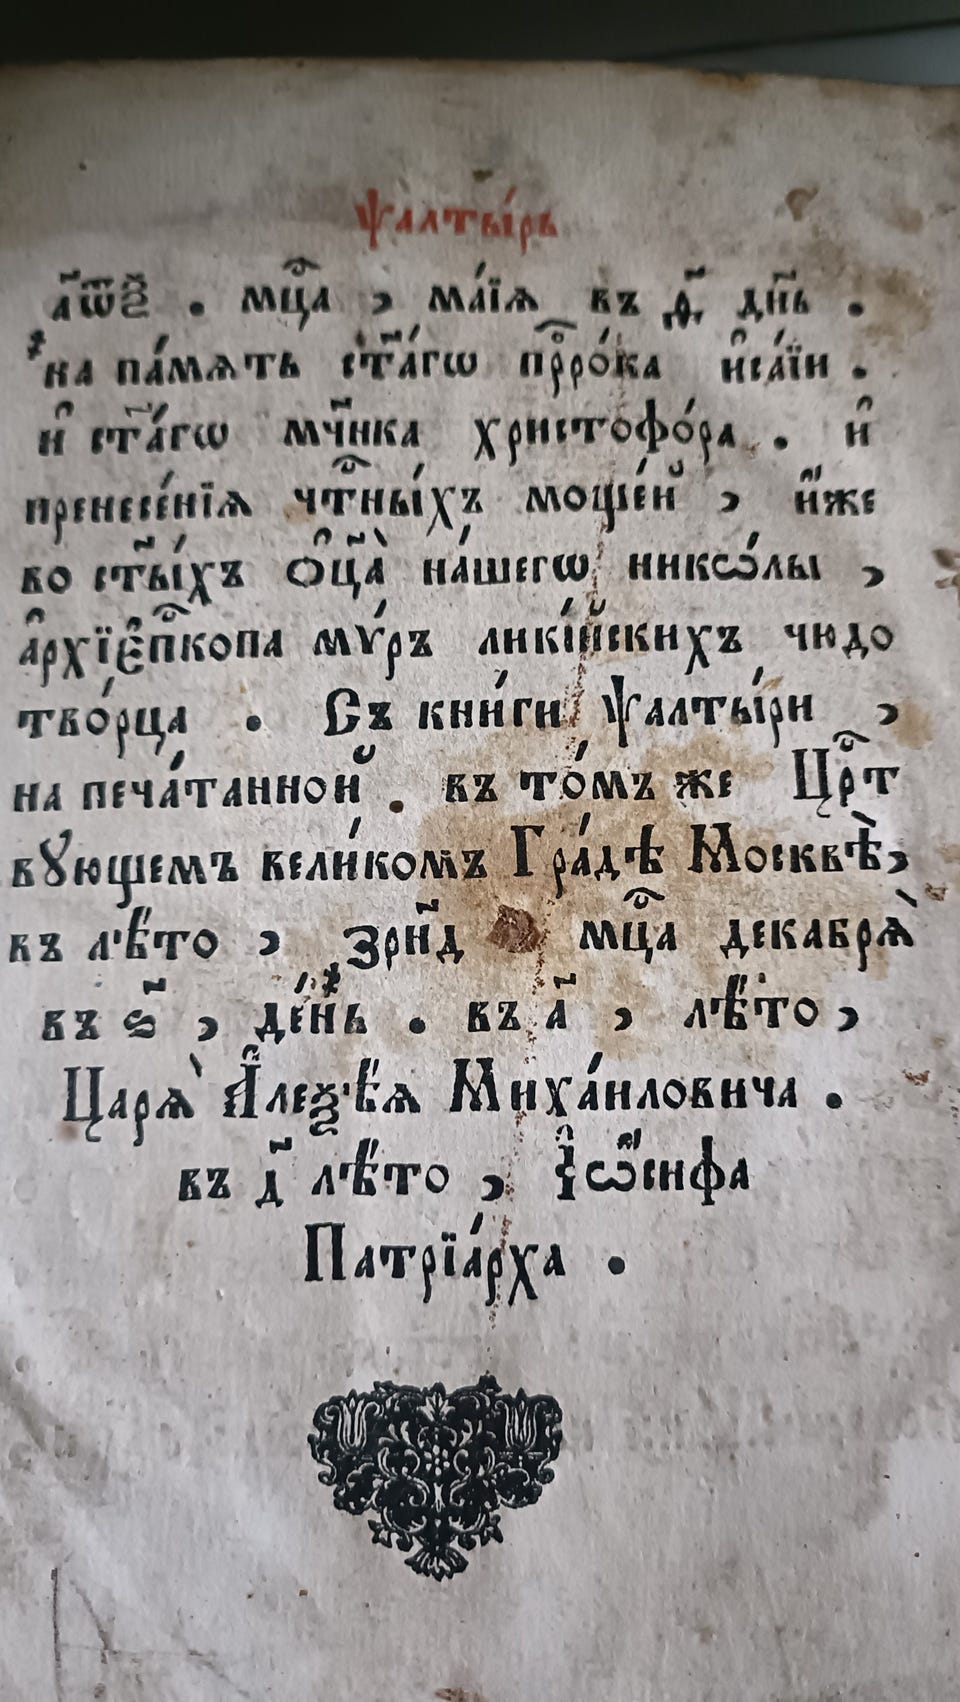 Ѱалты́рь
҂аѿѯ . мцⷭ҇а , ма́їѧ въ ѳ҃ дн҃ь .
на па́мѧть ст҃а́гѡ прⷪ҇ро́ка и҆са́їи .
и҆ ст҃а́гѡ мч҃нка христофо́ра . и҆
пренесе́нїѧ чтⷭ҇ны́хъ моще́й , и҆́же
во ст҃ы́хъ ѻ҆ц҃а̀ на́шегѡ никѡ́лы ,
а҆рхїє҆пⷭ҇копа мѵ́ръ ликі́йскихъ чюдо
тво́рца . Съ кни́ги ѱалты́ри ,
на печа́танной . въ то́мъ же Црⷭ҇т
вꙋющемъ вели́комъ Гра́дѣ Москвѣ̀,
въ лѣ́то , ҂зрн҃д мцⷭ҇а декабрѧ̀
въ ѕ҃ , де́нь . въ а҃ , лѣ́то ,
Царѧ̀ А҆леѯѣ́ѧ Миха́иловича .
въ д҃ лѣ́то , І҆ѡ́сифа
Патрїа́рха .